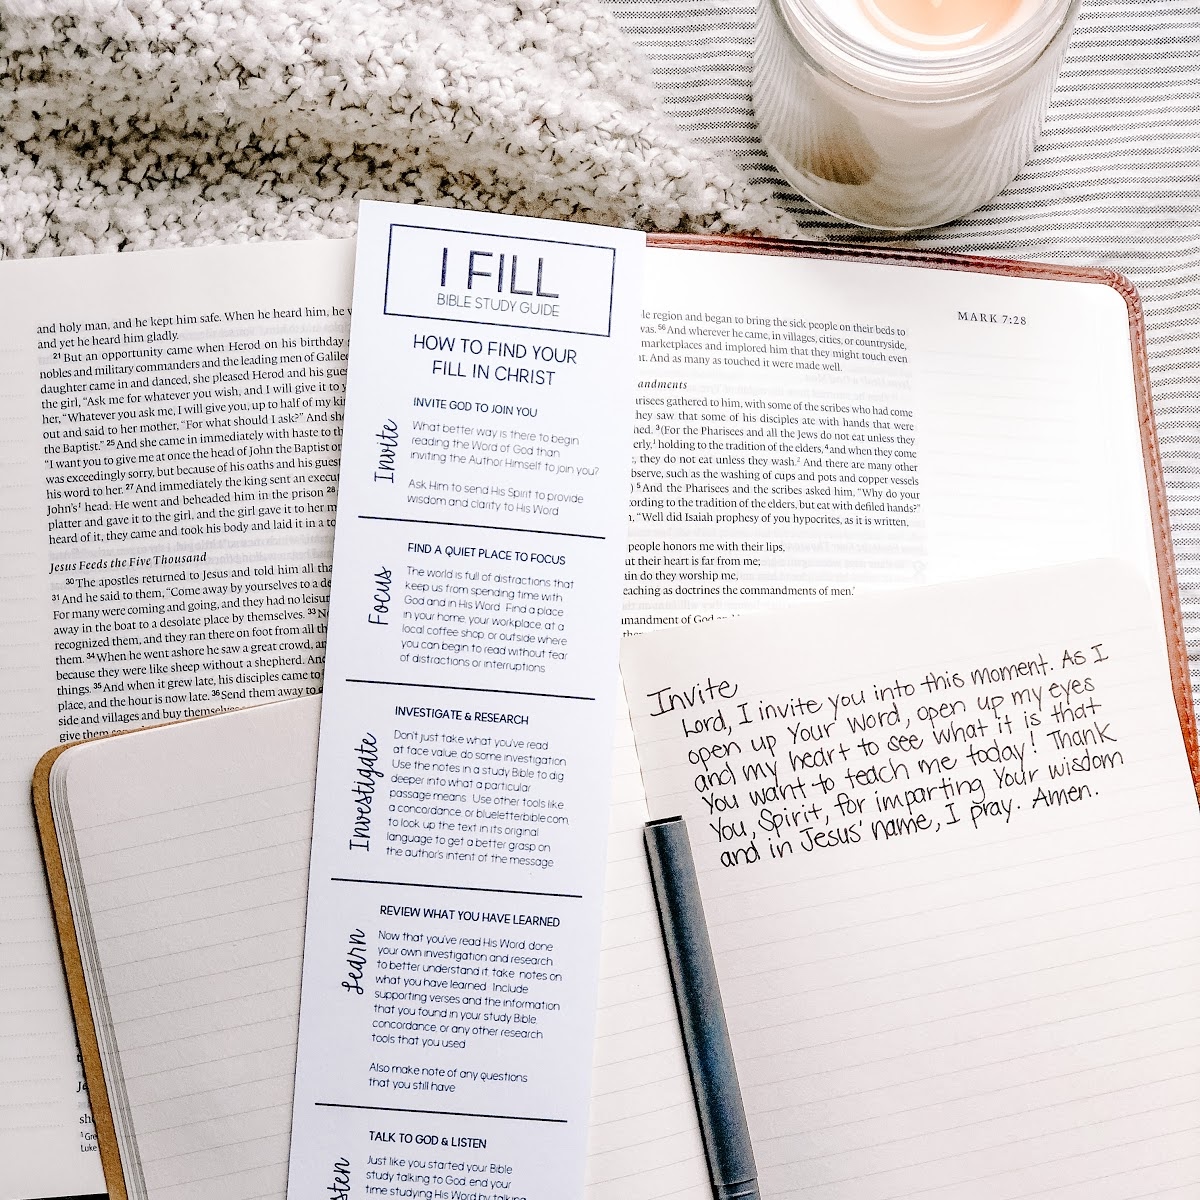 and holy man, and he kept him safe. When he heard him, he
and yet he heard him gladly.
21 But an opportunity came when Herod on his birthday
nobles and military commanders and the leading men of Galilee
daughter came in and danced, she pleased Herod and his
the girl, "Ask me for whatever you wish, and I will give it to
her, "Whatever you ask me, I will give you, up to half of my
out and said to her mother, "For what should I ask?" And she
the Baptist." 25 And she came in immediately with haste to
"I want you to give me at once the head of John the Baptist
was exceedingly sorry, but because of his oaths and his
his word to her. 27 And immediately the king sent an
John's head. He went and beheaded him in the prison 28
platter and gave it to the girl, and the girl gave it to her
heard of it, they came and took his body and laid it in a
Jesus Feeds the Five Thousand
30 The apostles returned to Jesus and told him all
31 And he said to them, "Come away by yourselves to a
For many were coming and going, and they had no
away in the boat to a desolate place by themselves. 33
recognized them, and they ran there on foot from all
them. 34 When he went ashore he saw a great crowd,
because they were like sheep without a shepherd. And
things. 35 And when it grew late, his disciples came to
place, and the hour is now late. 36 Send them away to
side and villages and buy themselves
give them
I FILL
BIBLE STUDY GUIDE
HOW TO FIND YOUR
FILL IN CHRIST
Invite
INVITE GOD TO JOIN YOU
What better way is there to begin
reading the Word of God than
inviting the Author Himself to join you?
Ask Him to send His Spirit to provide
wisdom and clarity to His Word
Focus
FIND A QUIET PLACE TO FOCUS
The world is full of distractions that
keep us from spending time with
God and in His Word. Find a place
in your home, your workplace, at a
local coffee shop, or outside where
you can begin to read without fear
of distractions or interruptions
Investigate
INVESTIGATE & RESEARCH
Don't just take what you've read
at face value, do some investigation
Use the notes in a study Bible to dig
deeper into what a particular
passage means. Use other tools like
a concordance, or blueletterbible.com,
to look up the text in its original
language to get a better grasp on
the author's intent of the message
Learn
REVIEW WHAT YOU HAVE LEARNED
Now that you've read His Word, done
your own investigation and research
to better understand it, take notes on
what you have learned. Include
supporting verses and the information
that you found in your study Bible,
concordance, or any other research
tools that you used
Also make note of any questions
that you still have
TALK TO GOD & LISTEN
Just like you started your Bible
study talking to God, end your
time studying His Word by talking
MARK 7:28
region and began to bring the sick people on their beds to
was. 56 And wherever he came, in villages, cities, or countryside,
marketplaces and implored him that they might touch even
And as many as touched it were made well.
gathered to him, with some of the scribes who had come
saw that some of his disciples ate with hands that were
3 (For the Pharisees and all the Jews do not eat unless they
holding to the tradition of the elders, 4 and when they come
they do not eat unless they wash. And there are many other
such as the washing of cups and pots and copper vessels
5 And the Pharisees and the scribes asked him, "Why do your
to the tradition of the elders, but eat with defiled hands?"
"Well did Isaiah prophesy of you hypocrites, as it is written,
people honors me with their lips,
their heart is far from me;
do they worship me,
as doctrines the commandments of men.'
of God
Invite
Lord, I invite you into this moment. As I
open up Your Word, open up my eyes
and my heart to see what it is that
You want to teach me today! Thank
You, Spirit, for imparting Your wisdom
and in Jesus' name, I pray. Amen.